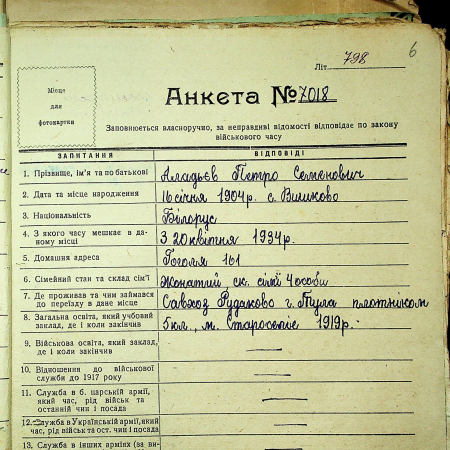 6
Літ. 798
Місце
для
фотокартки
Анкета № 7018
Заповнюється власноручно, за неправдиві відомості відповідає по закону
військового часу
ЗАПИТАННЯ ВІДПОВІДІ
1. Прізвище, ім'я та по батькові Аладьєв Петро Семенович
2. Дата та місце народження 16 січня 1904 р. с. Виликово
3. Національність Білорус
4. З якого часу мешкає в даному місці З 20 квітня 1934 р.
5. Домашня адреса Гоголя 161
6. Сімейний стан та склад сім'ї Жонатий, ск. сімї 4 особи
7. Де проживав та чим займався
до переїзду в дане місце Савхоз Рудаково г. Тула плотніком
8. Загальна освіта, який учбовий
заклад, де і коли закінчив 5 кл., м. 1919 р.
9. Військова освіта, який заклад,
де і коли закінчив —
10. Відношення до військової
служби до 1917 року —
11. Служба в б. царській армії,
який час, рід військ та
останній чин і посада —
12. Служба в Українській армії, який
час, рід військ та ост. чин і посада —
13. Служба в інших арміях (за ви-